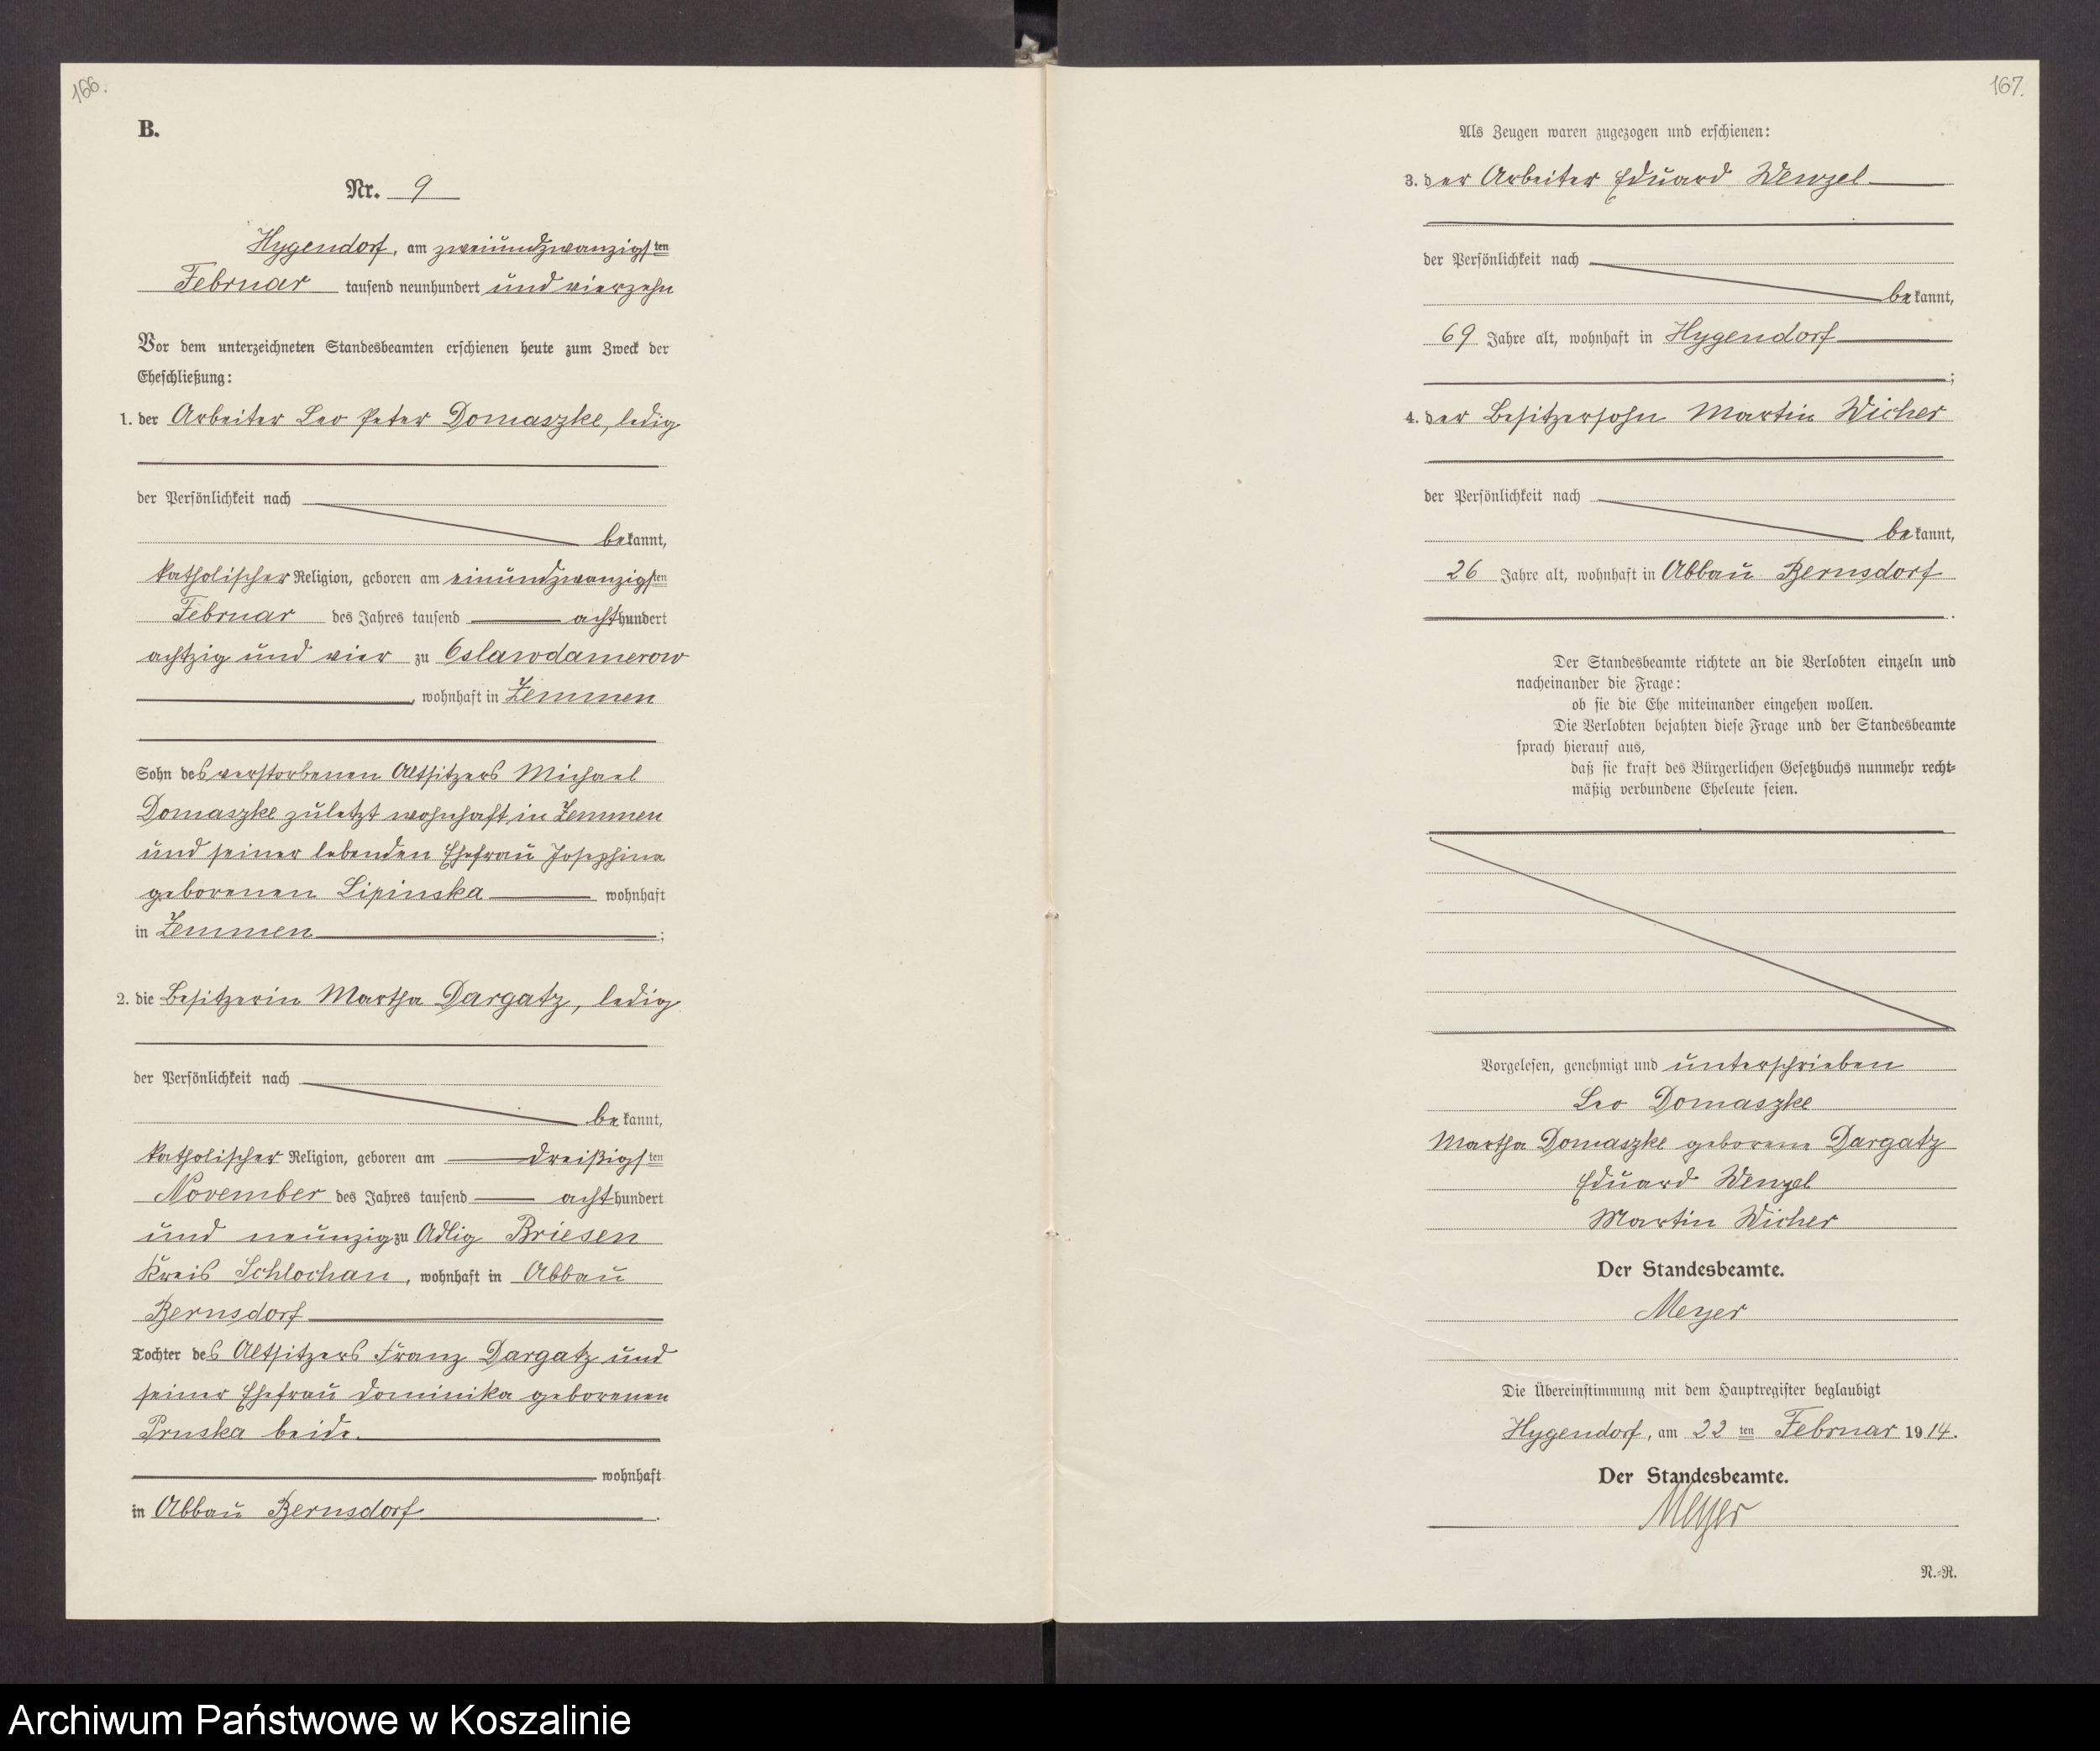 166.
B.
Nr. 9
Hygendorf, am zweiundzwanzigsten
Februar tausend neunhundert und vierzehn
Vor dem unterzeichneten Standesbeamten erschienen heute zum Zweck der
Eheschließung:
1. der Arbeiter Leo Peter Domaszke, ledig
der Persönlichkeit nach
bekannt,
katholischer Religion, geboren am einundzwanzigsten
Februar des Jahres tausend achthundert
achtzig und vier zu Oslawdamerow
, wohnhaft in Zemmen
Sohn des verstorbenen Altsitzers Michael
Domaszke zuletzt wohnhaft in Zemmen
und seiner lebenden Ehefrau Josephine
geborenen Lipinska wohnhaft
in Zemmen ;
2. die Besitzerin Martha Dargatz, ledig
der Persönlichkeit nach
bekannt,
katholischer Religion, geboren am dreißigsten
November des Jahres tausend achthundert
und neunzig zu Adlig Briesen
Kreis Schlochau, wohnhaft in Abbau
Bernsdorf
Tochter des Altsitzers Franz Dargatz und
seiner Ehefrau Dominika geborenen
Pruska beide
wohnhaft
in Abbau Bernsdorf .
167.
Als Zeugen waren zugezogen und erschienen:
3. der Arbeiter Eduard Wenzel
der Persönlichkeit nach
bekannt,
69 Jahre alt, wohnhaft in Hygendorf
;
4. der Besitzersohn Martin Wicher
der Persönlichkeit nach
bekannt,
26 Jahre alt, wohnhaft in Abbau Bernsdorf
.
Der Standesbeamte richtete an die Verlobten einzeln und
nacheinander die Frage:
ob sie die Ehe miteinander eingehen wollen.
Die Verlobten bejahten diese Frage und der Standesbeamte
sprach hierauf aus,
daß sie kraft des Bürgerlichen Gesetzbuchs nunmehr recht-
mäßig verbundene Eheleute seien.
Vorgelesen, genehmigt und unterschrieben
Leo Domaszke
Martha Domaszke geborene Dargatz
Eduard Wenzel
Martin Wicher
Der Standesbeamte.
Meyer
Die Übereinstimmung mit dem Hauptregister beglaubigt
Hygendorf, am 22ten Februar 1914.
Der Standesbeamte.
Meyer
N.-R.
Archiwum Państwowe w Koszalinie